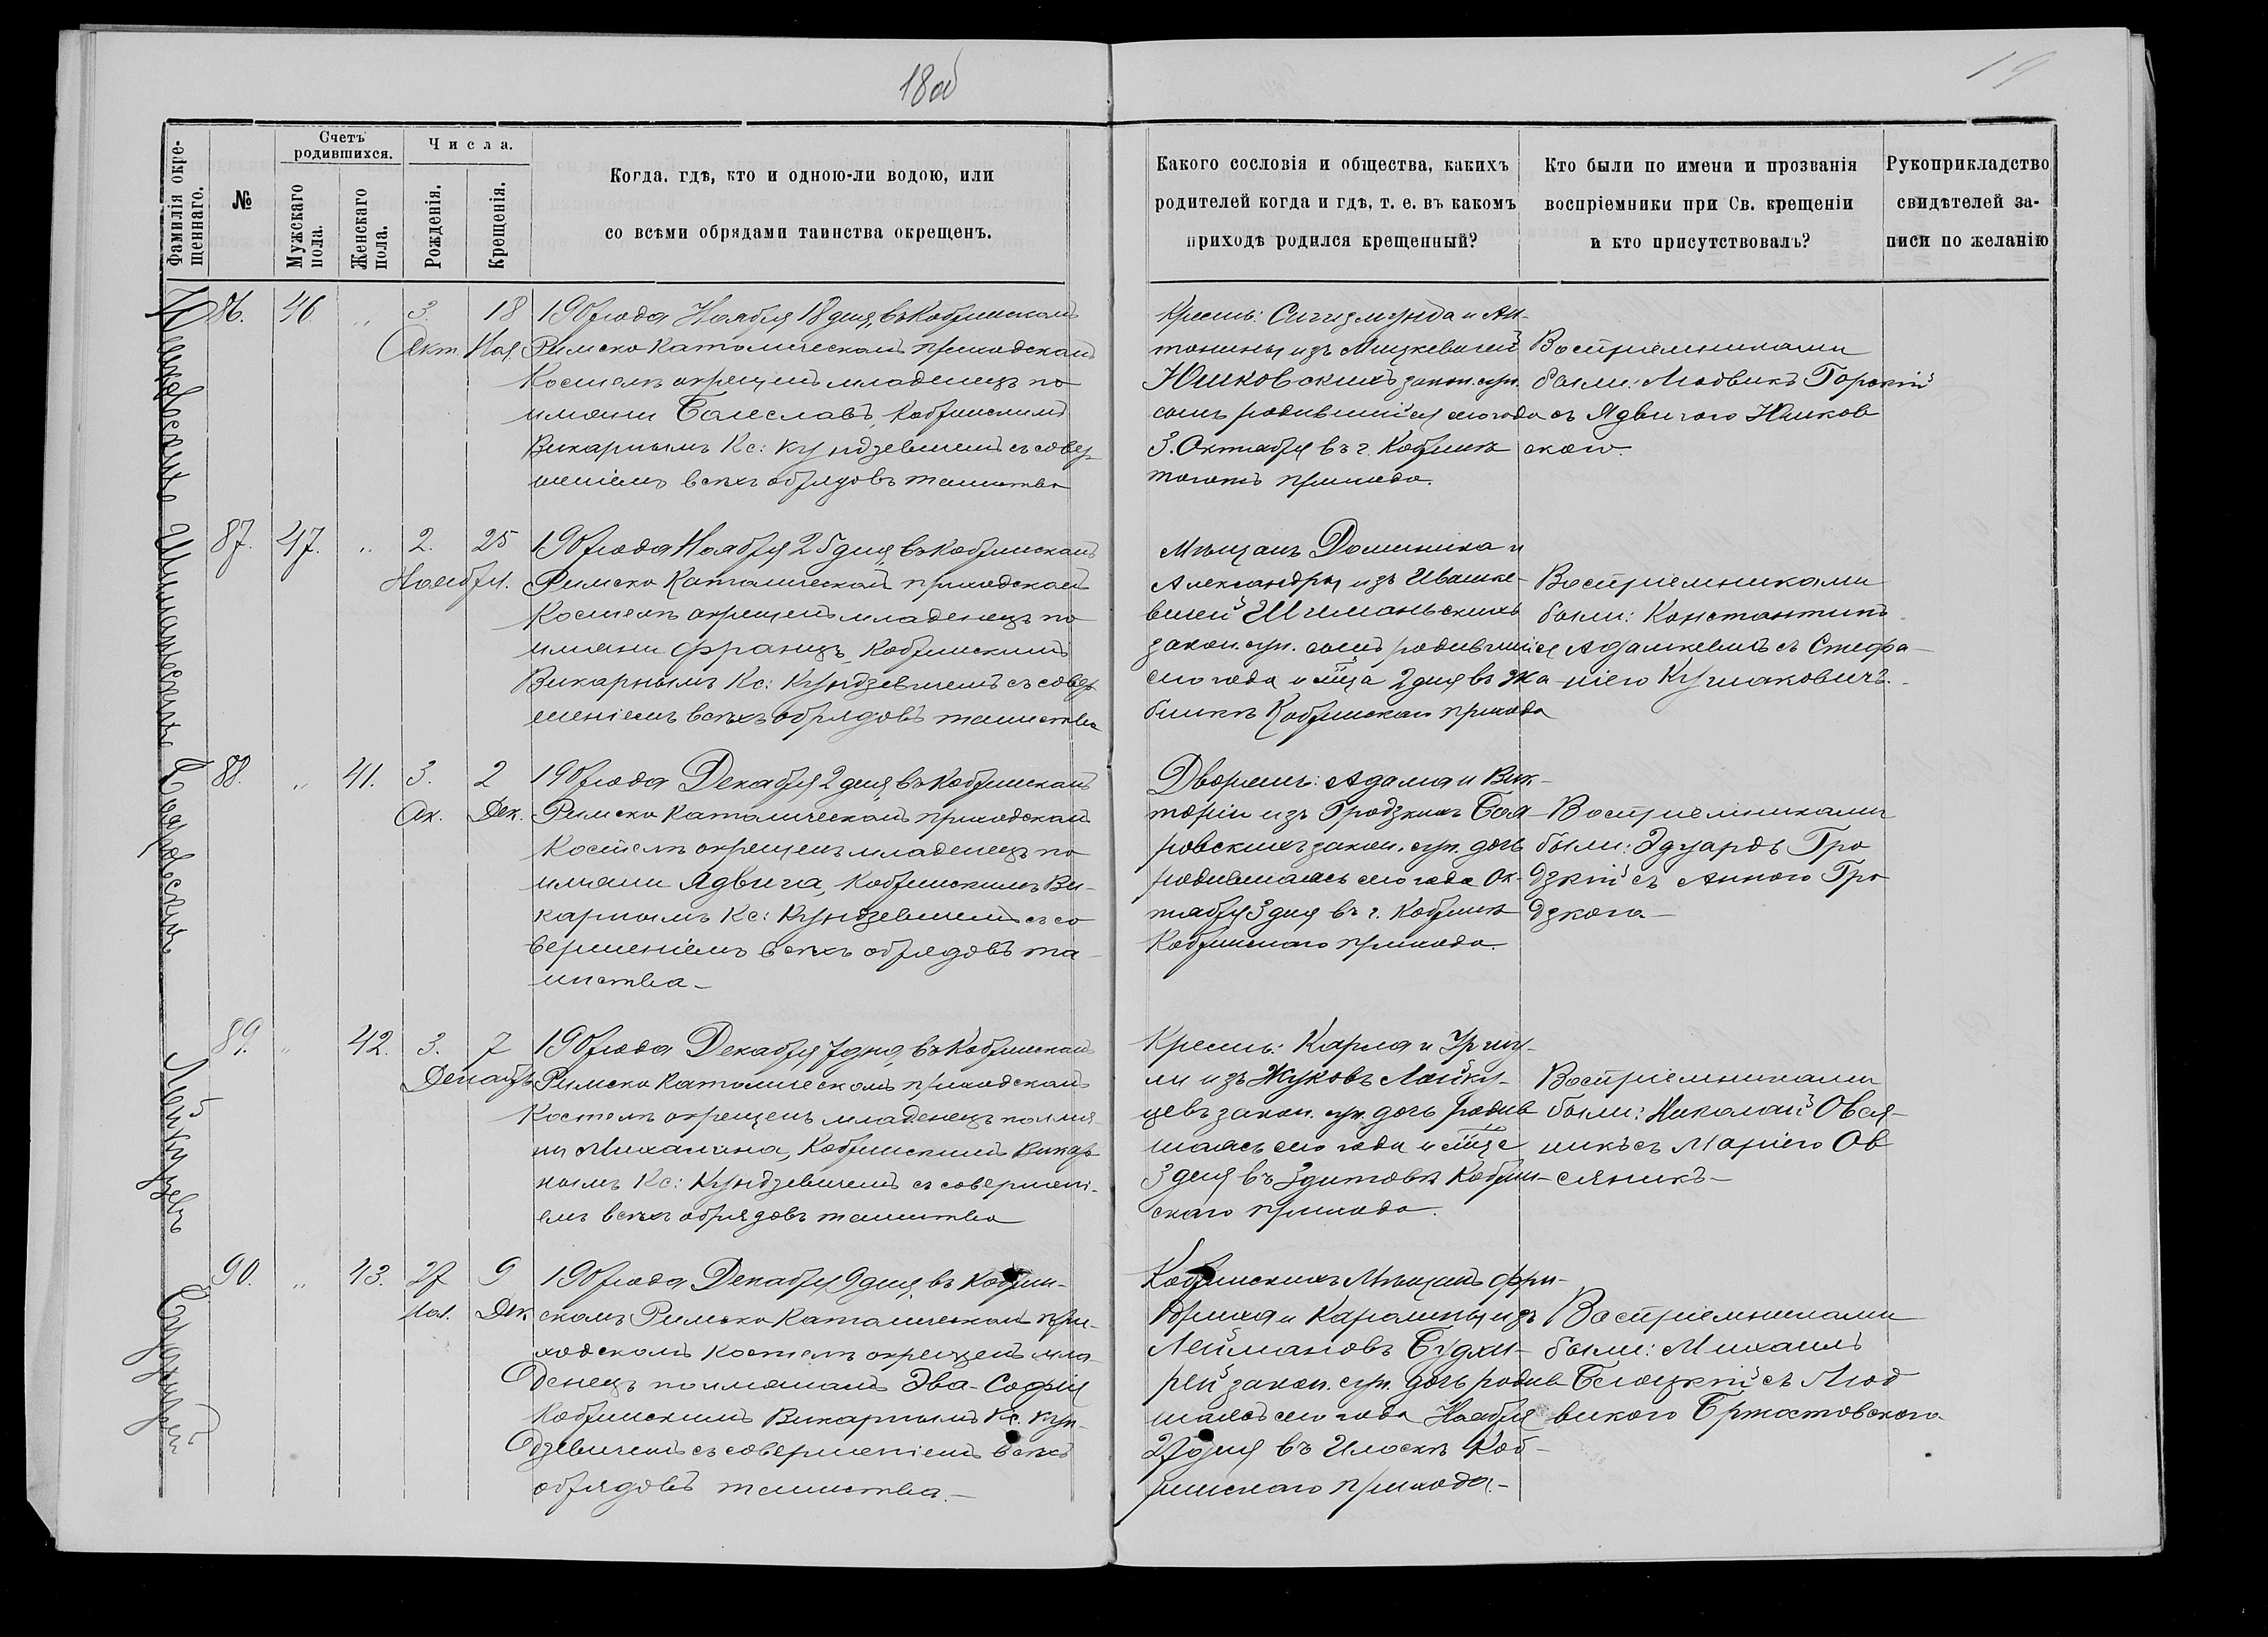 18об
19
Фамилія окре-
щеннаго.
№
Счетъ
родившихся.
Мужскаго
пола.
Женскаго
пола.
Числа.
Рожденія.
Крещенія.
Когда. гдѣ, кто и одною-ли водою, или
со всѣми обрядами таинства окрещенъ.
Какого сословія и общества, какихъ
родителей когда и гдѣ, т. е. въ какомъ
приходѣ родился крещенный?
Кто были по имени и прозванія
воспріемники при Св. крещеніи
и кто присутствовалъ?
Рукоприкладство
свидѣтелей за-
писи по желанію
86. 46 „ 3. 18
Окт. Ноя.
года Ноября 18 дня, въ Кобринскомъ
Римско Католическомъ приходскомъ
Костелѣ окрещенъ младенецъ по
имени Болеславъ, Кобринскимъ
Викарнымъ Кс: Кундзевичемъ съ совер-
шеніемъ всѣхъ обрядовъ таинства
Кресть: Сигизмунда и Ан-
тонины изъ Мицкевичей
Юшковскихъ закон. суп.
сынъ родившійся сего года
3. Октября въ г. Кобринѣ
тогожъ прихода.
Воспріемниками
были: Людвикъ Горскій
съ Ядвигою Юшков
скою.
87. 47. „ 2. 25
Ноября.
года Ноября 25 дня, въ Кобринскомъ
Римско Католическомъ приходскомъ
Костелѣ окрещенъ младенецъ по
имени Францъ, Кобринскимъ
Викарнымъ Кс: Кундзевичемъ съ совер
шеніемъ всѣхъ обрядовъ таинства
Мѣщанъ Доминика и
Александры изъ Ивашке-
вичей
закон. суп. сынъ родившійся
сего года и мца 2 дня въ Жа-
бинкѣ Кобринскаго прихода
Воспріемниками
были: Константинъ
Адамкевичъ съ Стефа-
ніею
88. „ 41. 3. 2
Ок. Дек.
года Декабря 2 дня, въ Кобринскомъ
Римско Католическомъ приходскомъ
Костелѣ окрещенъ младенецъ по
имени Ядвига, Кобринскимъ Ви-
карнымъ Кс: Кундзевичемъ съ со
вершеніемъ всѣхъ обрядовъ та-
инства-
Дворянъ: Адама и Вик-
торіи изъ Гродзкихъ Боя-
ровскихъ закон. суп. дочь
родившаяся сего года Ок-
тября 3 дня въ г. Кобринѣ
Кобринскаго прихода.
Воспріемниками
были: Эдуардъ Гро
дзкій съ Анною Гро
дзкою-
89. „ 42. 3. 7
Декабр.
года Декабря 7 дня, въ Кобринскомъ
Римско Католическомъ приходскомъ
Костелѣ окрещенъ младенецъ по имя
ни Михалина, Кобринскимъ Викар
нымъ Кс: Кундзевичемъ съ совершені-
емъ всѣхъ обрядовъ таинства
Кресть: Карла и Уршу-
ли изъ Жуковъ Лойку-
цевъ закон. суп. дочь родив
шаясь сего года и мца
3 дня въ Здитовѣ Кобрин-
скаго прихода.
Воспріемниками
были: Николай Овся-
никъ съ Маріею Ов
сяникъ-
90. „ 43. 27 9
Ноя. Дек.
года Декабря 9 дня, въ Кобрин-
скомъ Римско Католическомъ при-
ходскомъ Костелѣ окрещенъ мла-
денецъ по именамъ Эва-Софія
Кобринскимъ Викарнымъ Кс. Кун-
дзевичемъ съ совершеніемъ всѣхъ
обрядовъ таинства.-
Кобринскихъ Мѣщанъ Фри-
дриха и Каролины изъ
Леймановъ
закон. суп. дочь родив
шаясь сего года Ноября
27 дня въ Илоскѣ Коб-
ринскаго прихода.-
Воспріемниками
были: Михаилъ
съ Люд
викою